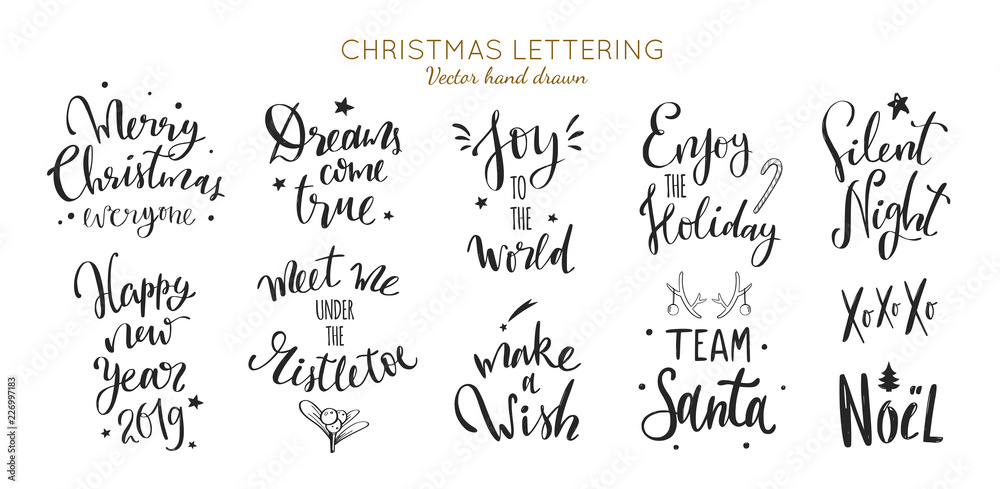 CHRISTMAS LETTERING
Vector hand drawn
Merry
Christmas
everyone
Dreams
come
true
Joy
TO
THE
World
Enjoy
THE
Holiday
Silent
Night
Happy
new
Year
2019
Meet me
UNDER
THE
Mistletoe
make
a
Wish
TEAM
Santa
XoXoXo
NOËL
Adobe Stock | #226997183